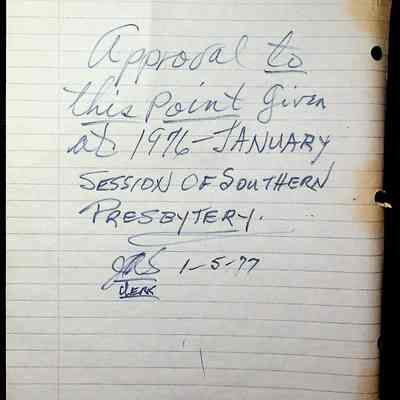 Approval to
this Point Given
at 1976-JANUARY
SESSION OF SOUTHERN
PRESBYTERY.
1-5-77
CLERK